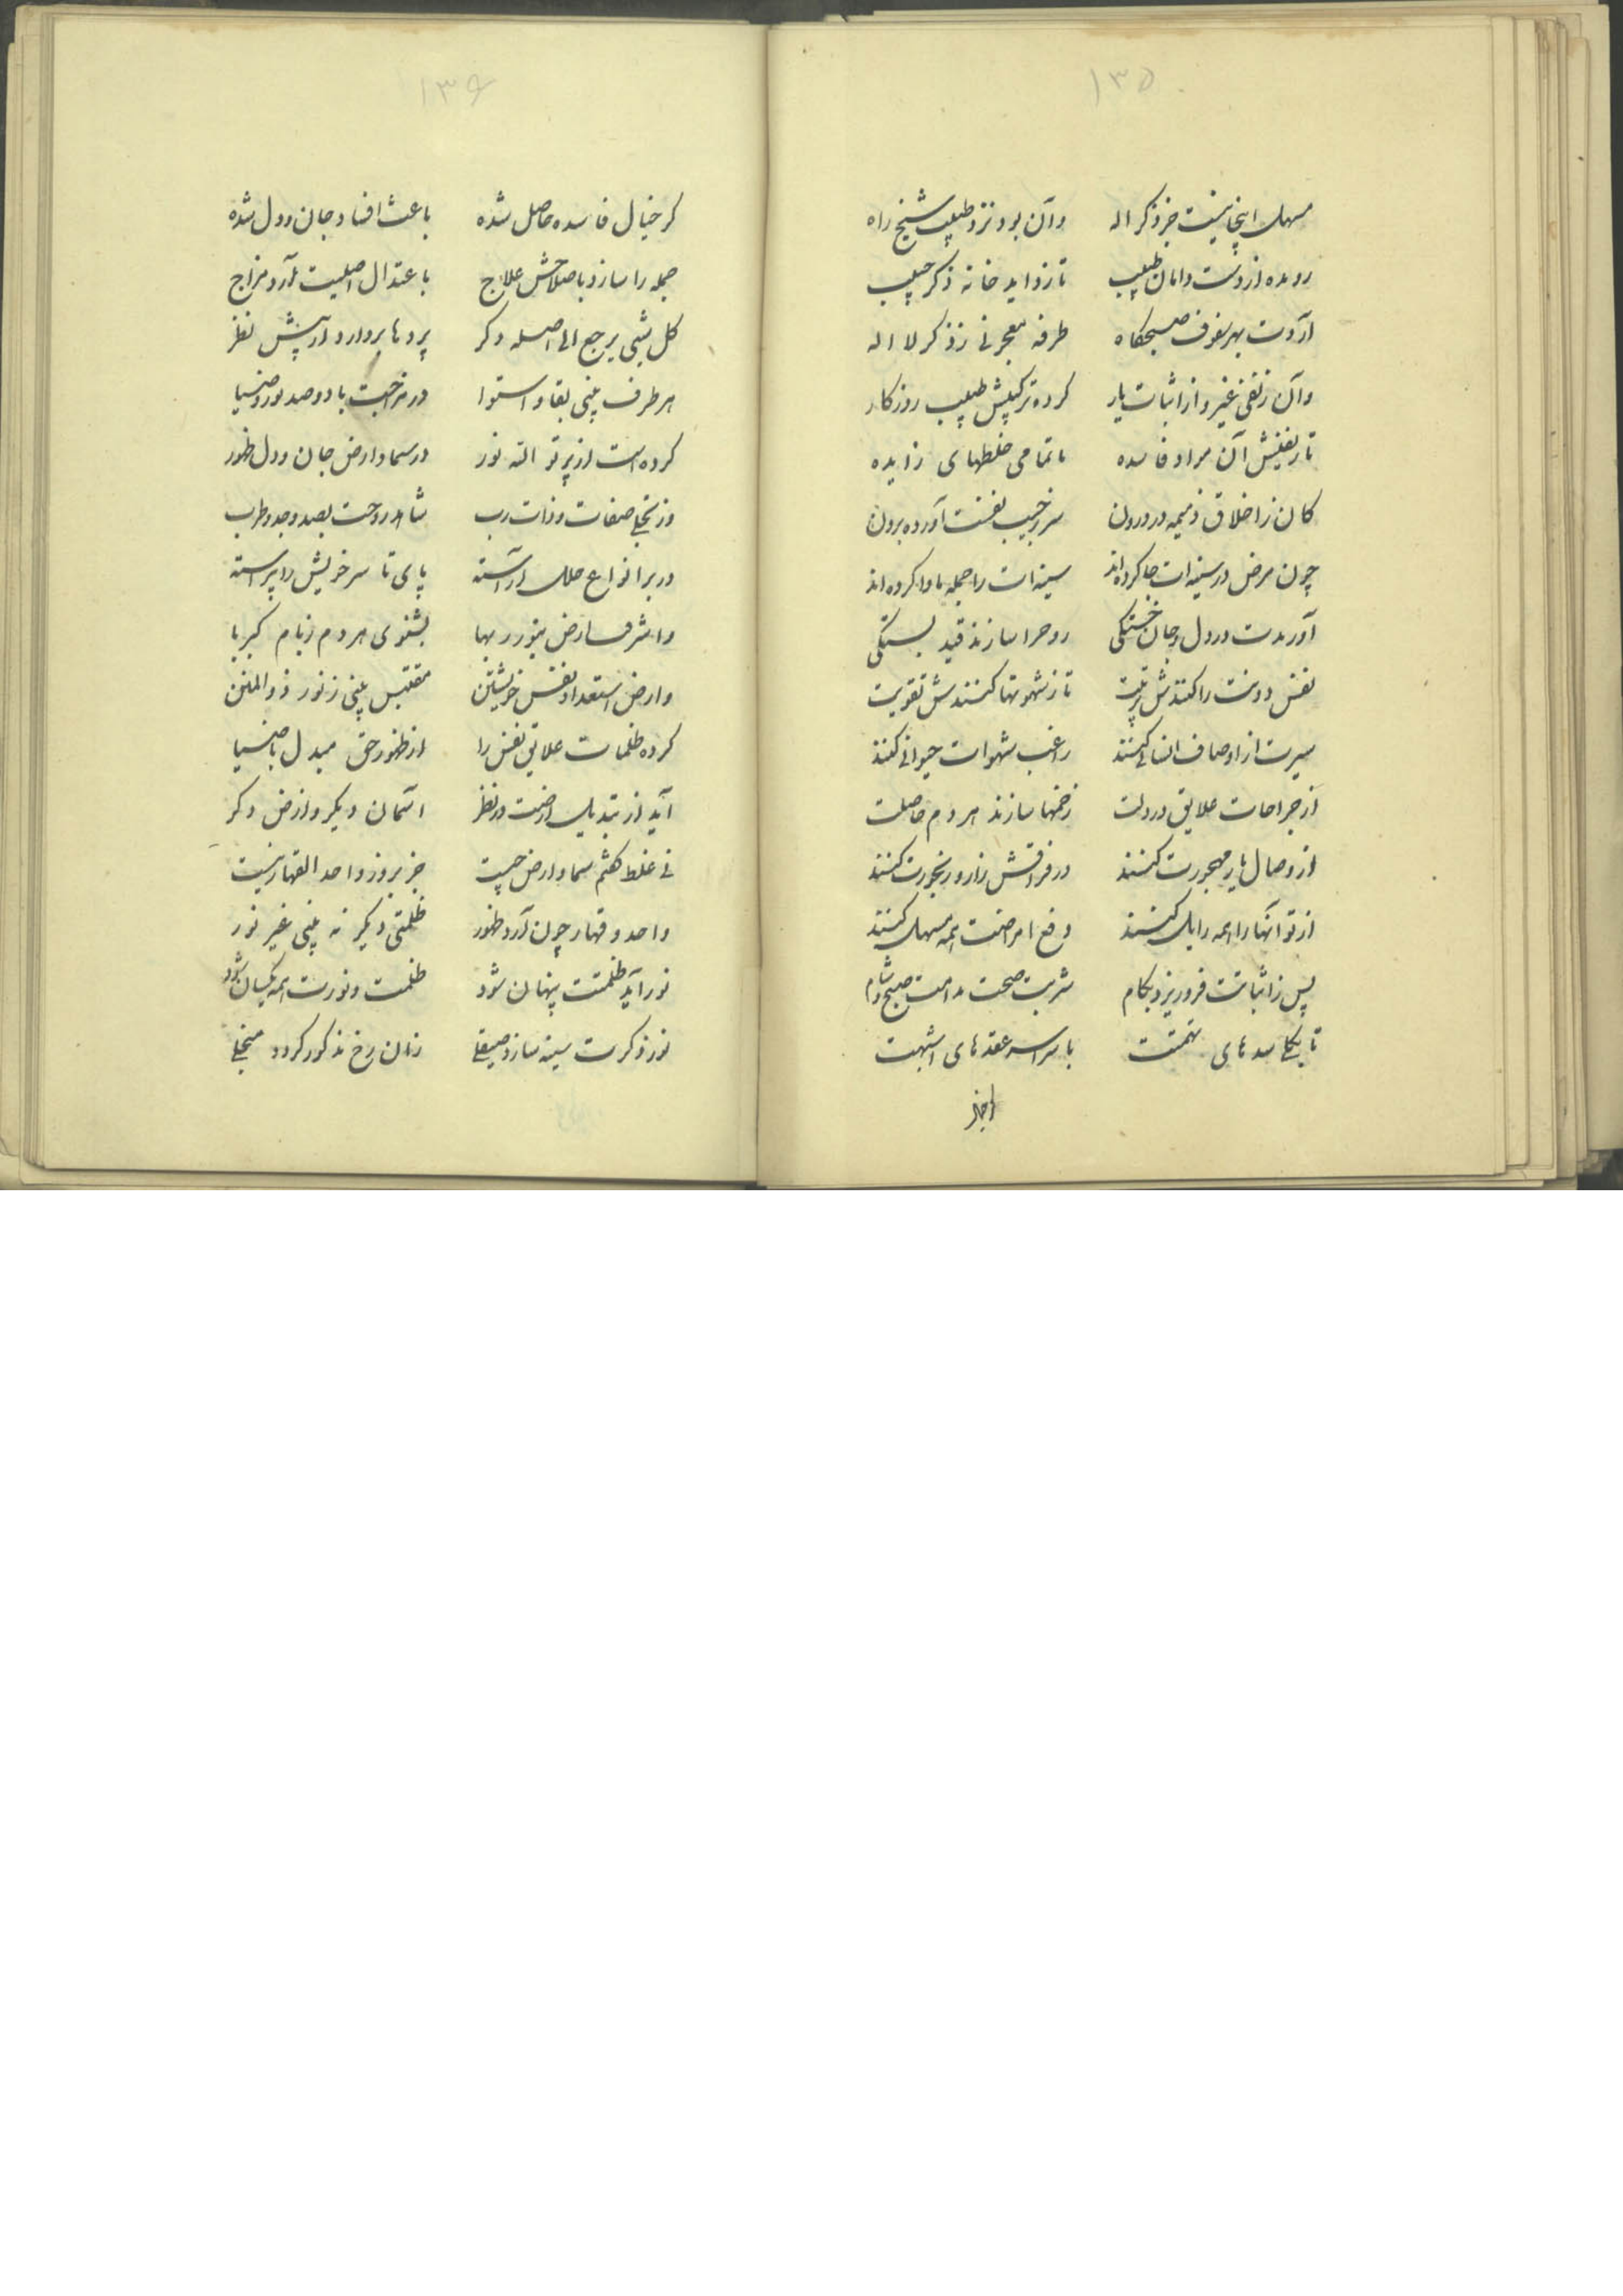 ۱۳۵
مسهل اینجا نیست جز ذکر اله وآن بود نزد طبیب شیخ راه
رو مده از دست دامان طبیب تا زداید خانه ذکر حبیب
آردت بهر سفوف صبحگاه طرفه معجونی ز ذکر لا اله
وآن ز نفی غیر و از اثبات یار کرده ترکیبش طبیب روزکار
تا ز نفیش آن مواد فاسده با تمامی خلطهای زایده
کان ز اخلاق ذمیمه در درون سر ز جیب نفست آورده برون
چون مرض در سینه ات جا کرده اند سینه ات را جمله ماوا کرده اند
آورندت در دل و جان خستکی روح را سازند قید بستکی
نفس دونت را کنندش تربیت تا ز شهوتها کنندش تقویت
سیرت از اوصاف انسانی کنند راغب شهوات حیوانی کنند
از جراحات علایق در دلت زخمها سازند هر دم حاصلت
از وصال یار مهجورت کنند در فراقش زار و رنجورت کنند
از تو آنها را همه زایل کنند دفع امراضت همه مسهل کنند
پس ز اثباتت فرو ریزد بکام شربت صحت مدامت صبح و شام
تا یکی سدهای تهمتت با سراسر عقدهای شبهتت
۱۳۶
کز خیال فاسده حاصل شده باعث افساد جان و دل شده
جمله را سازد باصلاحش علاج باعتدال اصلیت آرد مزاج
کل شیئی یرجع الی اصله دکر پردها بردارد از پیش نظر
هر طرف بینی بقا و استوا در مزاجت با دوصد نور و ضیا
کرده است از پرتو الله نور در سما و ارض جان و دل ظهور
وز تجلی صفات و ذات رب شاهد روحت بصد وجد و طرب
در بر انواع حلل آراسته پای تا سر خویش را پیراسته
واشرقت ارض بنور ربها بشنوی هر دم ز بام کبریا
وارض استعداد نفس خویشتن مقتبس بینی ز نور ذوالمنن
کرده ظلمات علایق نفس را از ظهور حق مبدل با ضیا
آید از تبدیل ارضت در نظر آسمان دیکر و ارض دکر
نی غلط کفتم سما و ارض چیست جز بروز واحد القهار نیست
واحد و قهار چون آرد ظهور ظلمتی دیکر نه بینی غیر نور
نور آید ظلمتت پنهان شود ظلمت و نورت همه یکسان شود
نور ذکرت سینه سازد صیقلی زان رخ مذکور کردد منجلی